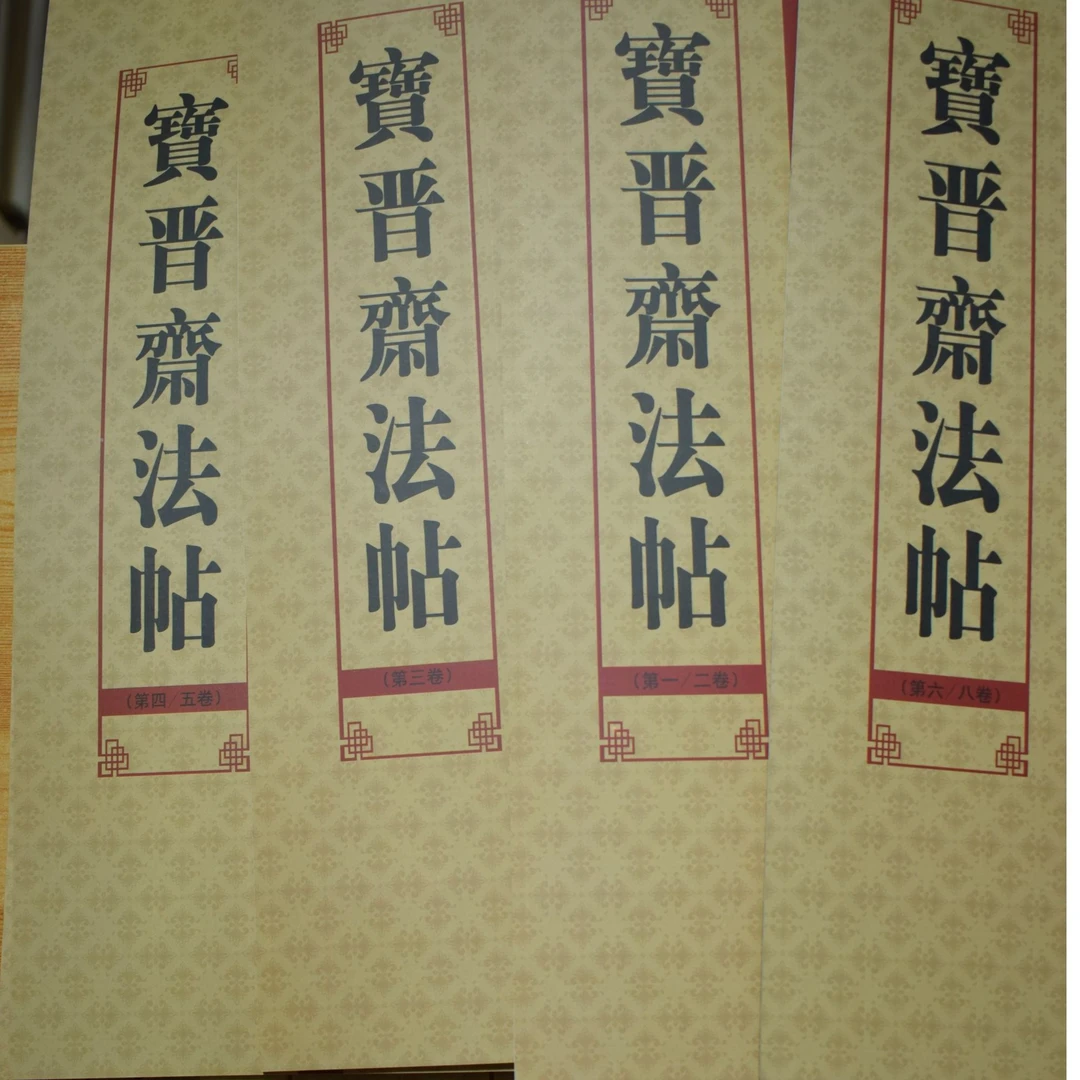 寶晋齋法帖
（第四/五卷）
寶晋齋法帖
（第三卷）
寶晋齋法帖
（第一/二卷）
寶晋齋法帖
（第六/八卷）